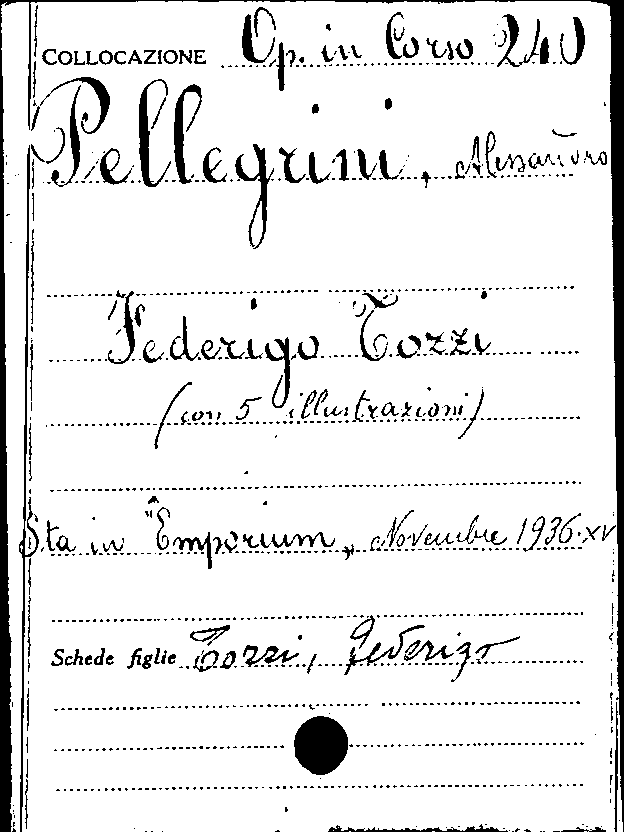 COLLOCAZIONE Op. in Corso 240
Pellegrini, Alessandro
Federigo Tozzi
(con 5 illustrazioni)
Sta in "Emporium„ Novembre 1936-XV
Schede figlie Tozzi, Federigo